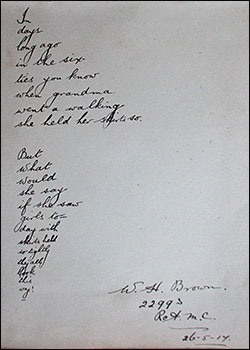 In
days
long ago
in the six-
ties you know
when grandma
went a walking
she held her skirts so.
But
what
would
she say
if she saw
girls to=
day with
skirts held
so tightly
they all
look
this
way!
W. H. Brown.
22993
R.A.M.C.
26-5-17.